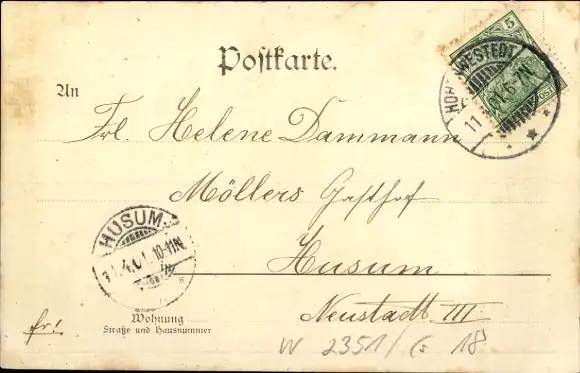 Postkarte.
5
HOHENWESTEDT
11
6-7N
An
Frl. Helene Dammann
Möllers Gasthof
HUSUM
4.01. 10-11N
Husum
Wohnung
Straße und Hausnummer
Neustadt III
fr!
W 2351/ 18